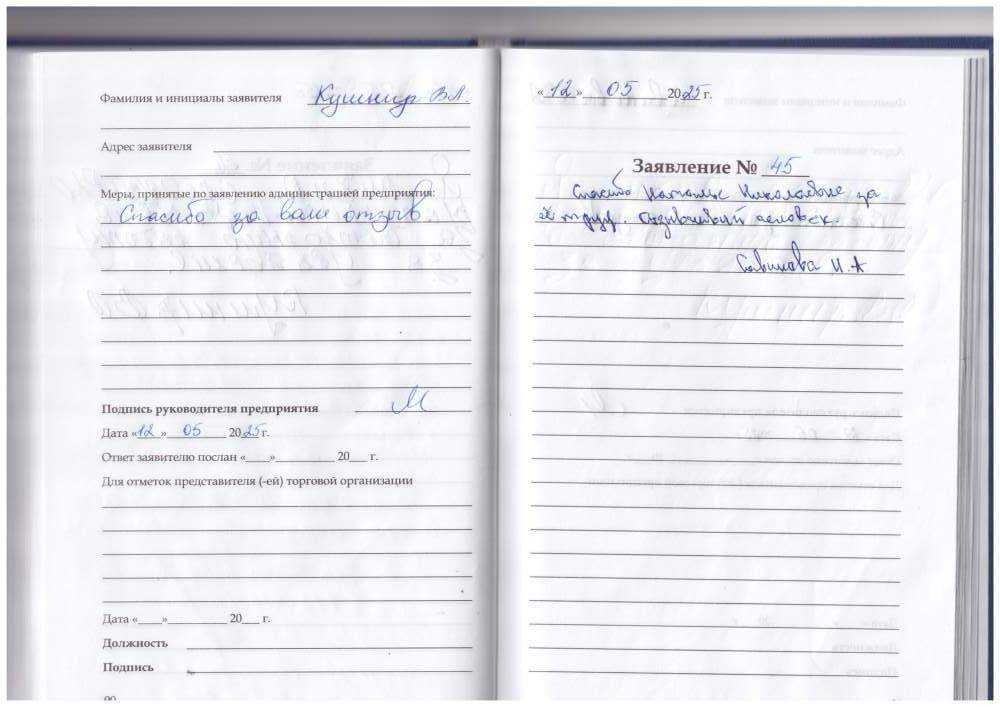 Фамилия и инициалы заявителя Кушнир В.Л.
Адрес заявителя
Меры, принятые по заявлению администрацией предприятия:
Спасибо за ваш отзыв
Подпись руководителя предприятия
Дата «12» 05 2025 г.
Ответ заявителю послан «____»__________ 20___ г.
Для отметок представителя (-ей) торговой организации
Дата «____»__________ 20___ г.
Должность
Подпись
«12» 05 2025 г.
Заявление № 45
Спасибо Наталье Николаевне за
её труд. Отзывчивый человек.
Савинова И.А